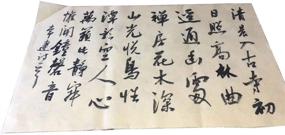 清晨入古寺初
日照高林曲
逕通幽處
禪房花木深
山光悅鳥性
潭影空人心
萬籟此静
惟聞鐘磬音